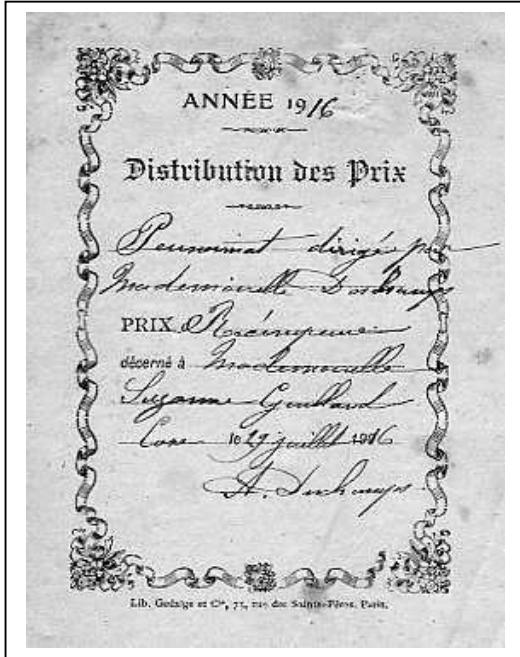 ANNÉE 1916
Distribution des Prix
Pensionnat dirigé par
Mademoiselle Deschamps
PRIX
décerné à Mademoiselle
Suzanne Gaillard
le 29 juillet 1916
A. Deschamps
Lib. Gedalge et Cie, 75, rue des Saints-Pères, Paris.